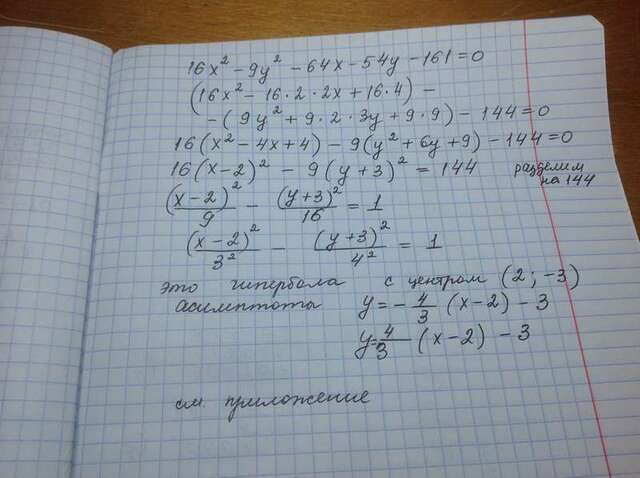 16x² - 9y² - 64x - 54y - 161 = 0
(16x² - 16·2·2x + 16·4) -
-(9y² + 9·2·3y + 9·9) - 144 = 0
16(x² - 4x + 4) - 9(y² + 6y + 9) - 144 = 0
16(x-2)² - 9(y+3)² = 144 разделим на 144
(x-2)²/9 - (y+3)²/16 = 1
(x-2)²/3² - (y+3)²/4² = 1
это гипербола с центром (2; -3)
асимптоты y = -4/3 (x-2) - 3
y = 4/3 (x-2) - 3
см приложение